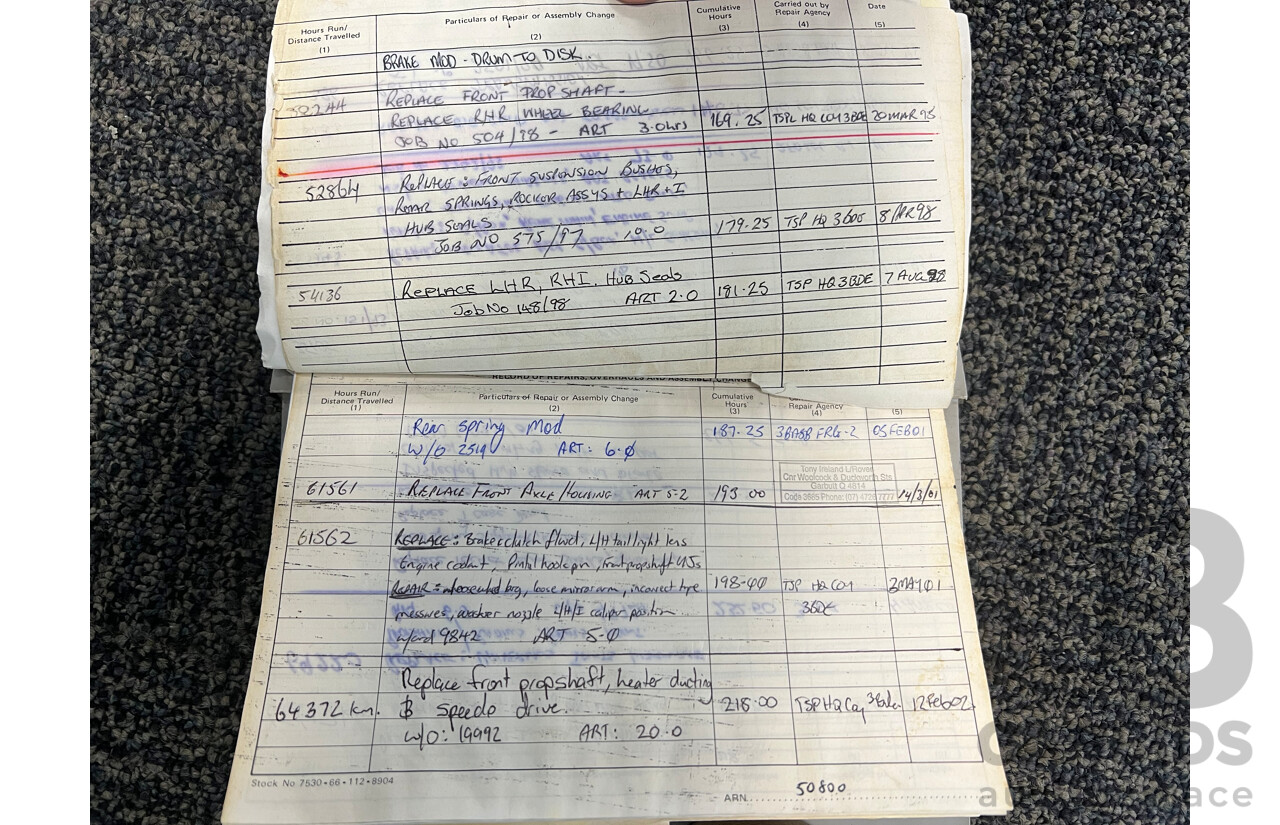 Hours Run/ Distance Travelled (1) Particulars of Repair or Assembly Change (2) Cumulative Hours (3) Carried out by Repair Agency (4) Date (5)
BRAKE MOD - DRUM TO DISK.
REPLACE FRONT PROP SHAFT -
REPLACE RHR WHEEL BEARING 169.25
JOB NO 504/98 - ART 3.0hrs
52864 REPLACE: FRONT SUSPENSION BUSHES,
REAR SPRINGS, ROCKOR ASSYS + LHR + I
HUB SEALS 179.25 TSP HQ 3BDE
JOB NO 575/97 10.0
54136 REPLACE LHR, RHI, HUB Seals 181.25 TSP HQ 3BDE 7 AUG 98
Job No 148/98 ART 2.0
RECORD OF REPAIRS, OVERHAULS AND ASSEMBLY CHANGE
Hours Run/ Distance Travelled (1) Particulars of Repair or Assembly Change (2) Cumulative Hours (3) Repair Agency (4) (5)
Rear spring Mod 187.25 3BASB 05 FEB 01
W/O 2519 ART: 6.0
Tony Ireland L/Rover
Cnr Woolcock & Duckworth Sts
Garbutt Q 4814
61561 REPLACE FRONT AXLE HOUSING ART 5-2 193 00 14/3/01
61562 REPLACE: Brake clutch fluid, L/H tail light lens
Engine coolant, Pintal hook pin, front propshaft UJs
REPAIR: loose mirror arm, incorrect tyre 198-40 TSP HQ COY 2MAY01
pressures, washer nozzle L/H/I caliper position 3BDE
9842 ART 5-0
Replace front propshaft, heater ducting
64372 km. & speedo drive. 218.00 TSP HQ Coy 3Bde 12Feb02
W/O: 19992 ART: 20.0
Stock No 7530-66-112-8904
ARN 50800